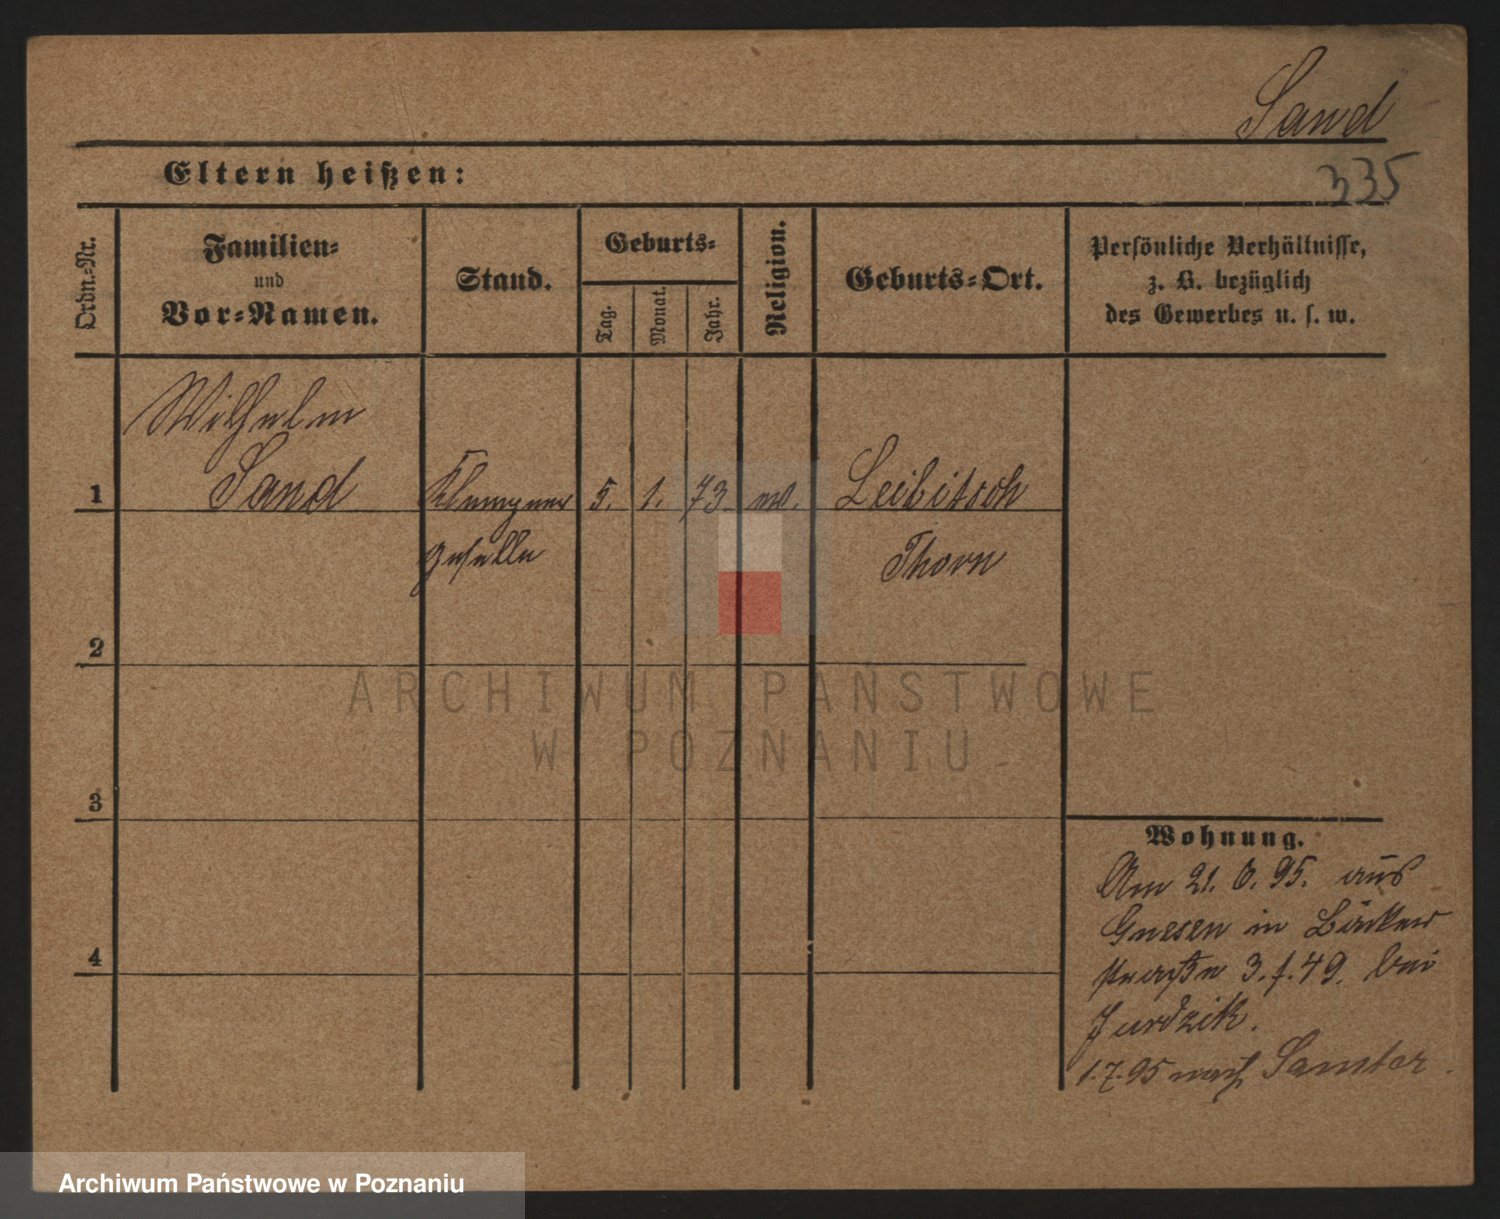 Sand
335
Eltern heißen:
Ordn.-Nr.
Familien-
und
Vor-Namen.
Stand.
Geburts-
Tag.
Monat.
Jahr.
Religion.
Geburts-Ort.
Persönliche Verhältnisse,
z. B. bezüglich
des Gewerbes u. s. w.
Wilhelm
1 Sand Klempner 5. 1. 73 ev. Leibitsch
geselle Thorn
2
3
4
Wohnung.
Am 21. 6. 95. aus
Gnesen in Bäcker
straße 3. f. 49. bei
Jurdzik.
1.7.95 nach Samter.
ARCHIWUM PAŃSTWOWE
W POZNANIU
Archiwum Państwowe w Poznaniu